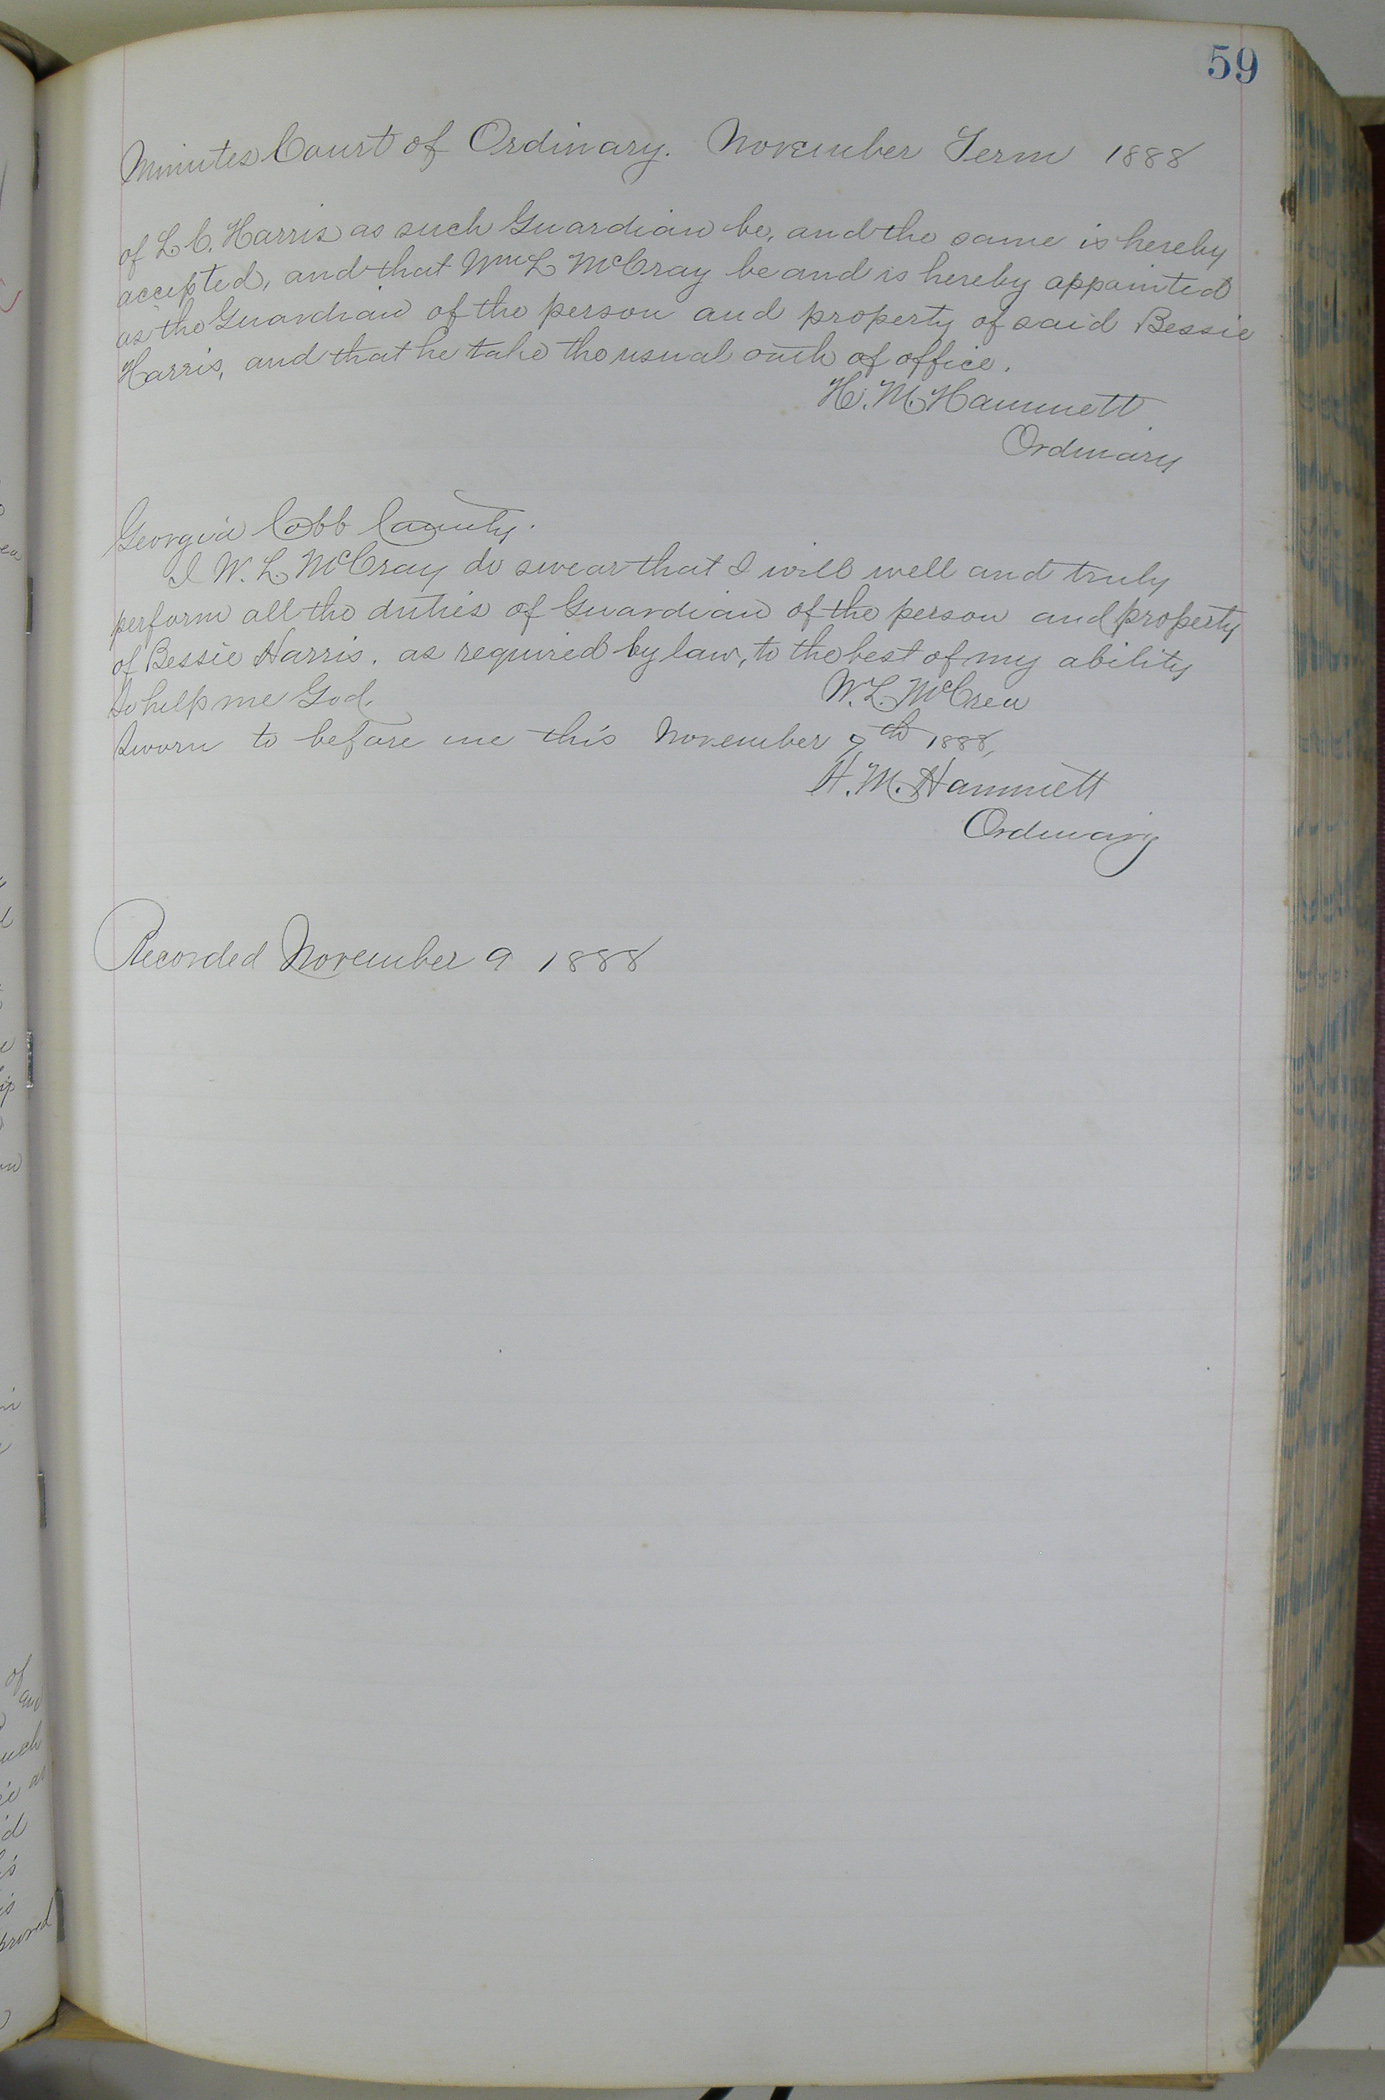 59
Minutes Court of Ordinary. November Term 1888
of L. C. Harris as such Guardian be, and the same is hereby
accepted, and that Wm L McCray be and is hereby appointed
as the Guardian of the person and property of said Bessie
Harris, and that he take the usual oath of office.
H. M. Hammett
Ordinary
Georgia Cobb County.
I W. L. McCray do swear that I will well and truly
perform all the duties of Guardian of the person and property
of Bessie Harris, as required by law, to the best of my ability
So help me God. W. L. McCrea
Sworn to before me this November 9th 1888,
H. M. Hammett
Ordinary
Recorded November 9 1888